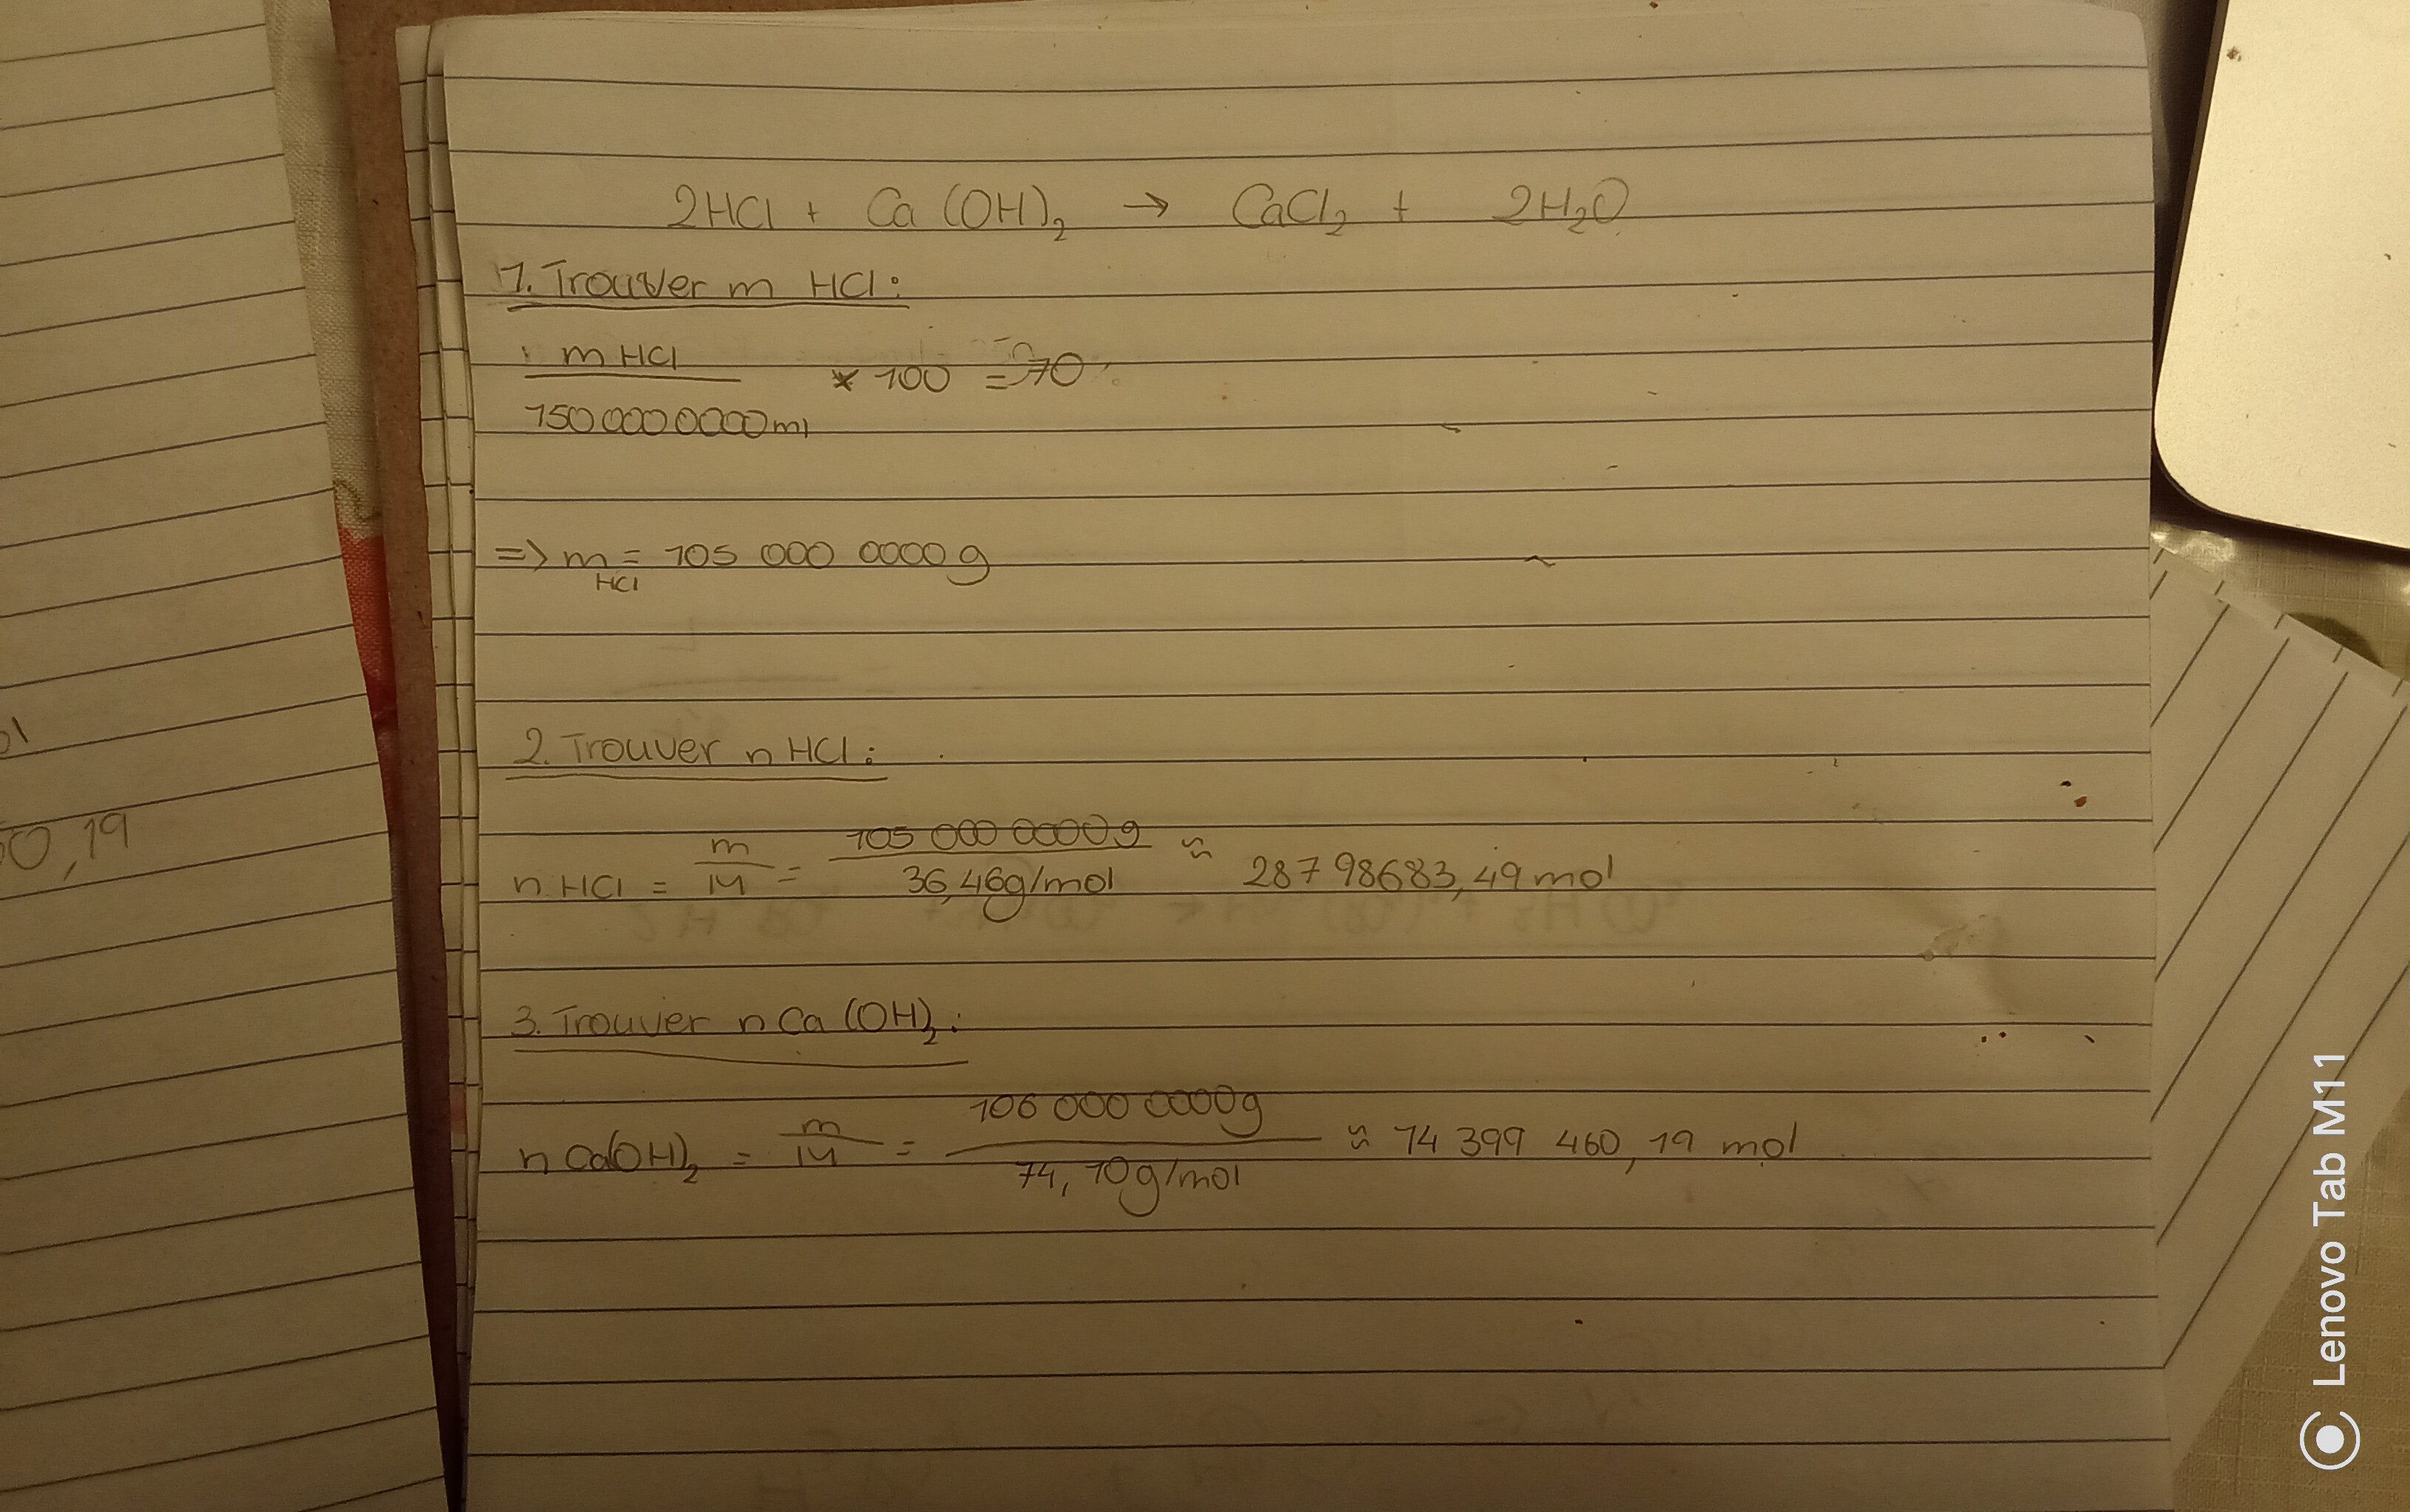 2HCl + Ca (OH)₂ → CaCl₂ + 2H₂O
1. Trouver m HCl:
m HCl
* 100 = 70
150 000 0000 ml
=> m HCl = 105 000 0000 g
2. Trouver n HCl:
n HCl = m/M = 105 000 0000 g / 36,46g/mol ≈ 287 98683,49 mol
3. Trouver n Ca (OH)₂:
n Ca(OH)₂ = m/M = 106 000 0000g / 74,10g/mol ≈ 14 399 460,19 mol
0,19
Lenovo Tab M11